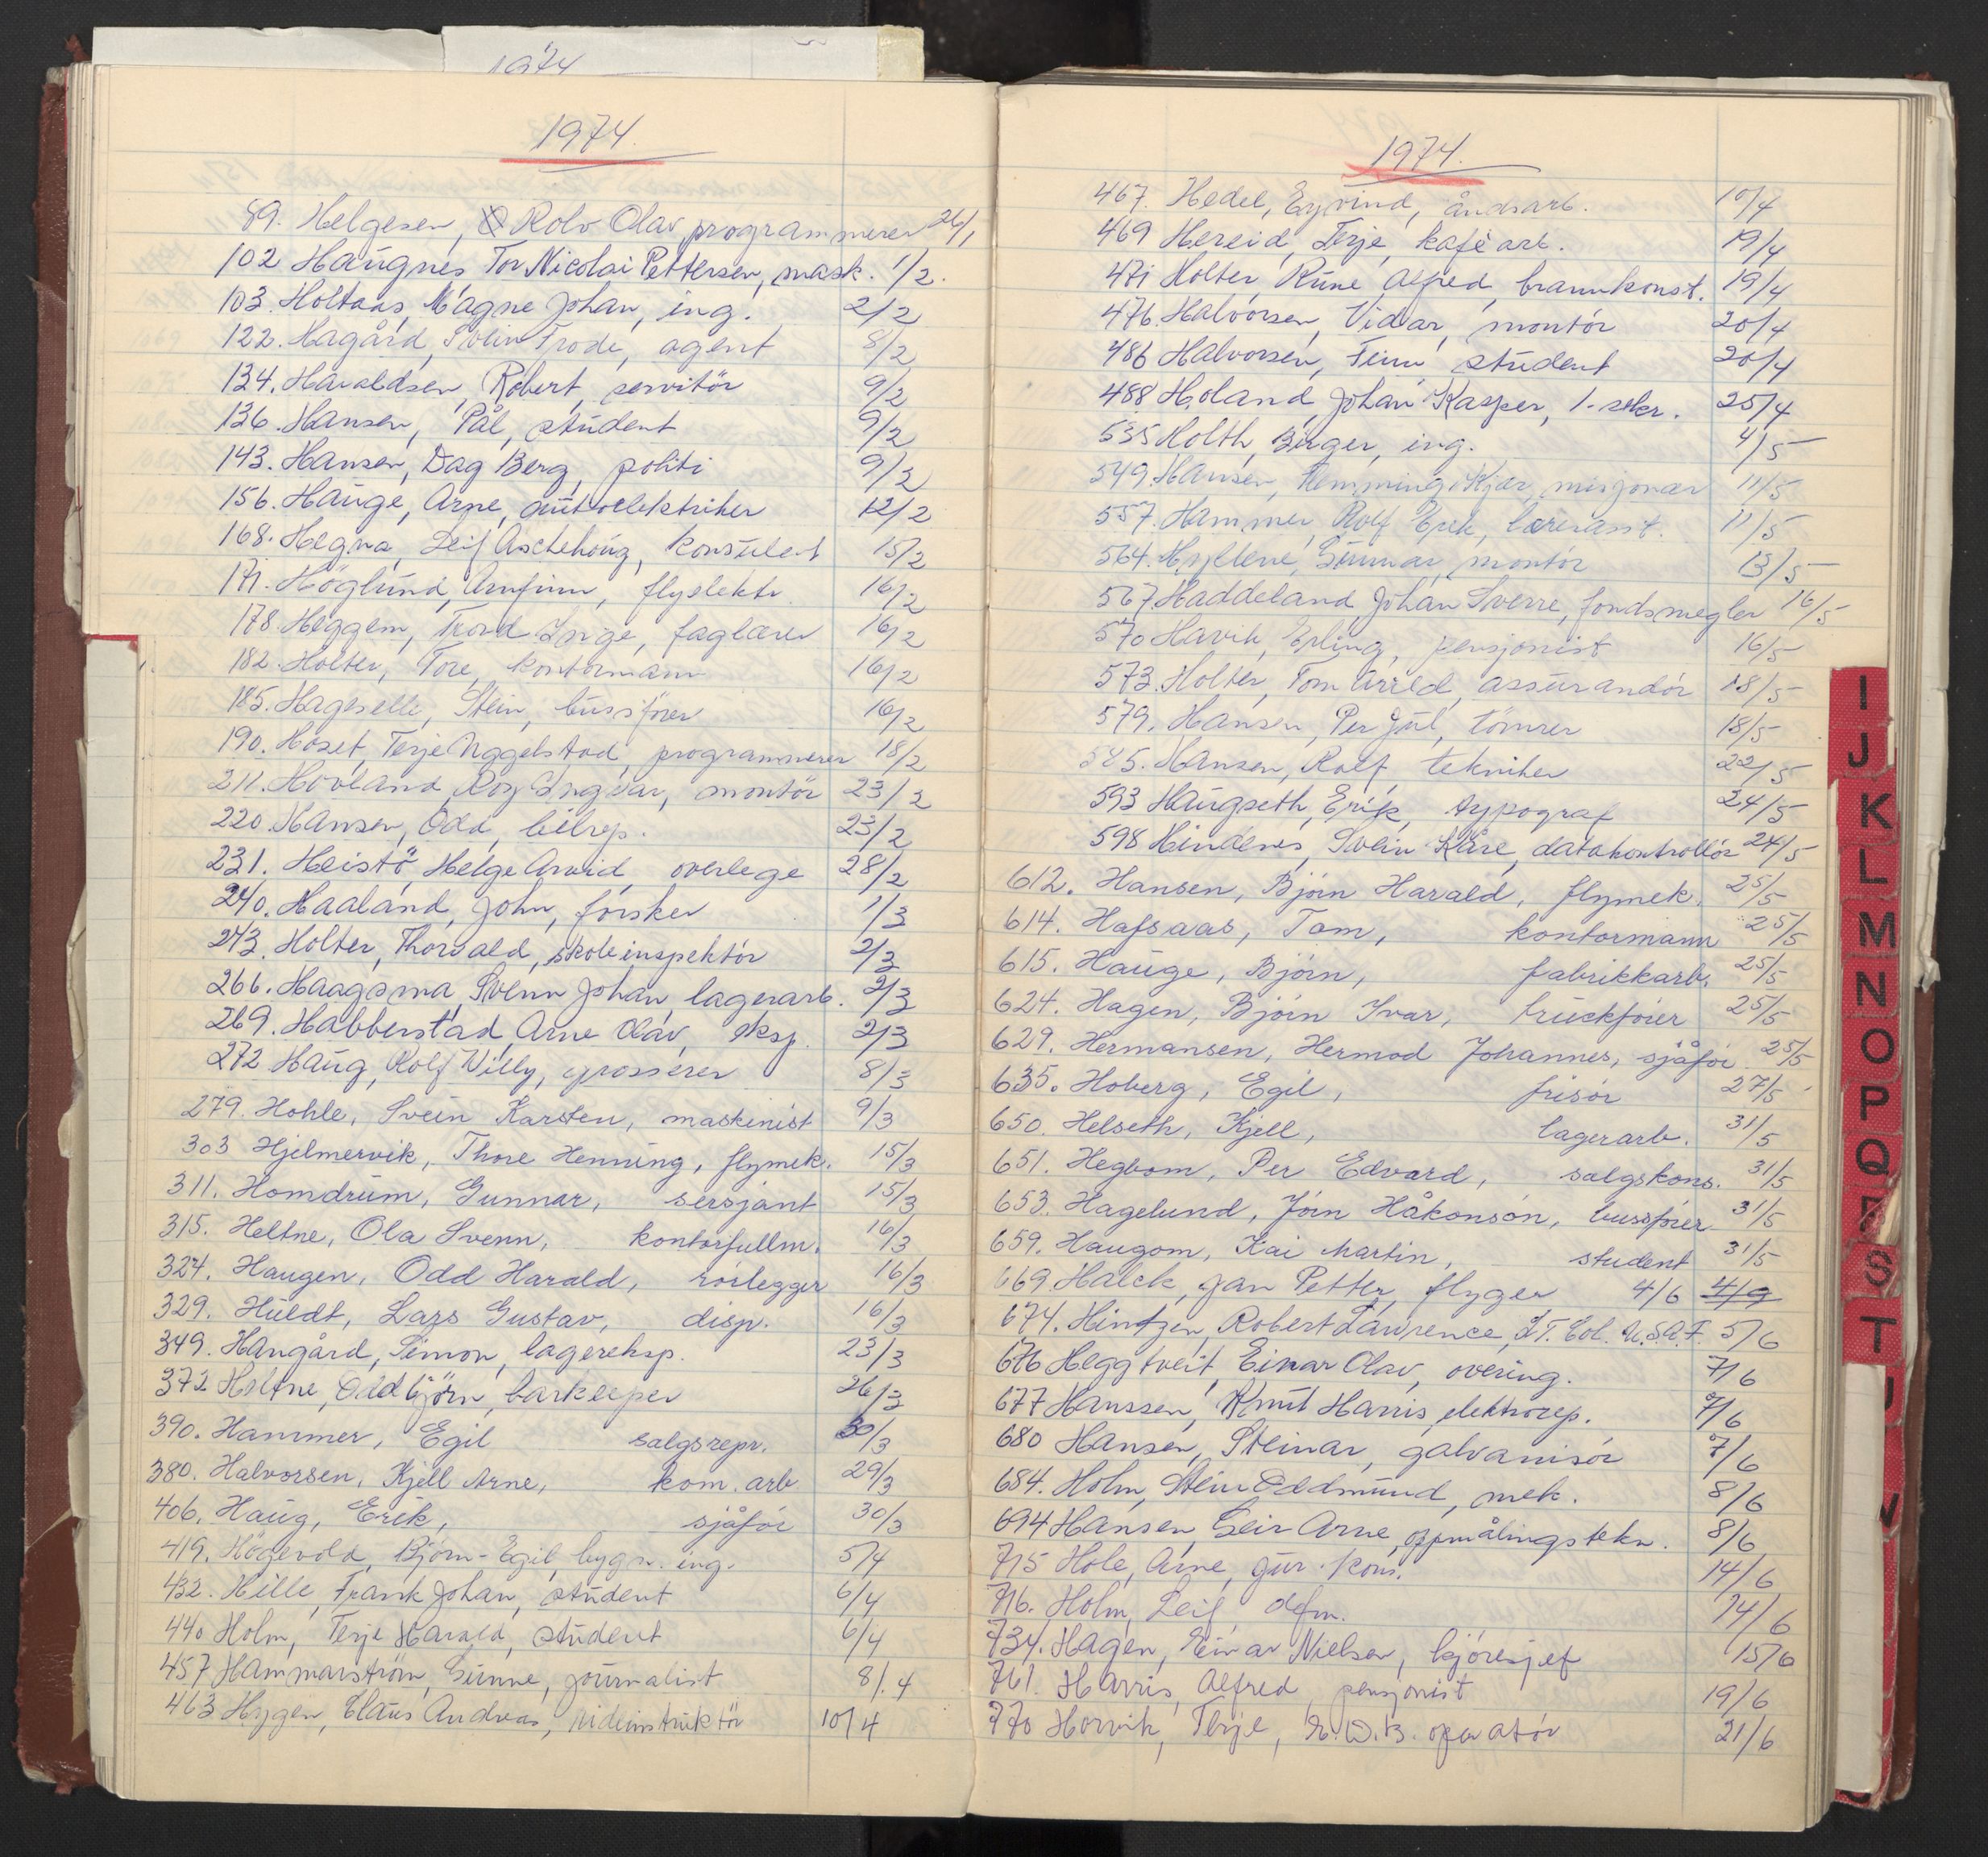 1974
1974.
89. Helgesen, Rolv Olav, programmerer 26/1
102 Haugnes Tor Nicolai Pettersen, mask. 1/2.
103. Holtaas, Magne Johan, ing. 2/2
122. Hagård, Svein Frode, agent 8/2
134. Haraldsen, Robert, servitör 9/2
136. Hansen, Pål, student 9/2
143. Hansen, Dag Berg, politi 9/2
156. Hauge, Arne, autoelektriker 12/2
168. Hegna, Leif Aschehoug, konsulent 15/2
171. Höglund, Arnfinn, flyelektr. 16/2
178. Heggem, Trond Inge, faglærer 16/2
182. Holter, Tore, kontormann 16/2
185. Hageselle, Stein, bussförer 16/2
190. Hoset, Terje Uggelstad, programmerer 18/2
211. Hovland, Roy Ingvar, montör 23/2
220. Hansen, Odd, bilrep. 23/2
231. Heistö, Helge Arvid, overlege 28/2
240. Haaland, John, forsker 1/3
243. Holter, Thorvald, skoleinspektör 2/3
266. Haagsma, Svenn Johan, lagerarb. 2/3
269. Habberstad, Arne Olav, eksp. 2/3
272 Haug, Rolf Willy, grosserer 8/3
279. Hohle, Svein Karsten, maskinist 9/3
303 Hjelmervik, Thore Henning, flymek. 15/3
311. Homdrum, Gunnar, sersjant 15/3
315. Heltne, Ola Svenn, kontorfullm. 16/3
324. Haugen, Odd Harald, rörlegger 16/3
329. Huldt, Lars Gustav, disp. 16/3
349. Haugård, Simon, lagereksp. 23/3
372 Holtne, Oddbjörn, barkeeper 26/3
390. Hammer, Egil salgsrepr. 30/3
380. Halvorsen, Kjell Arne, kom. arb. 29/3
406. Haug, Erik, sjåför 30/3
419. Högevold, Björn-Egil, bygn. ing. 5/4
432. Hille, Frank Johan, student 6/4
440 Holm, Terje Harald, student 6/4
457 Hammarström, Gunne, journalist 8/.4
463 Hygen, Claus Andreas, rideinstruktör 10/4
1974.
467. Hedel, Eyvind, åndsarb. 10/4
469 Hereid, Terje, kaféarb. 19/4
471 Holter, Rune Alfred, brannkonst. 19/4
476. Halvorsen, Vidar, montör 20/4
486 Halvorsen, Finn student 20/4
488 Holand, Johan Kasper, 1. sekr. 25/4
535 Holth, Birger, ing. 4/5
549. Hansen, Flemming Kjær, misjonær 11/5
557. Hammer, Rolf Erik, lærerasst. 11/5
564. Hyllene, Gunnar, montör 13/5
567. Haddeland, Johan Sverre, fondsmegler 16/5
570 Havik, Erling, pensjonist 16/5
573. Holter, Tom Arild, assurandör 18/5
579. Hansen, Per Jul, tömrer 18/5
585. Hansen, Rolf, tekniker 22/5
593 Haugseth, Erik, typograf 24/5
598 Hindenes, Svein Kåre, datakontrollör 24/5
612. Hansen, Björn Harald, flymek. 25/5
614. Hafsaas, Tom, kontormann 25/5
615. Hauge, Björn, fabrikkarb. 25/5
624. Hagen, Björn Ivar, truckförer 25/5
629. Hermansen, Hermod Johannes, sjåför 25/5
635. Hoberg, Egil, frisör 27/5
650. Helseth, Kjell, lagerarb. 31/5
651. Hegbom, Per Edvard, salgskons. 31/5
653. Hagelund, Jörn Håkonsön, bussförer 31/5
659. Haugom, Kai Martin, student 31/5
669. Halck, Jan Petter, flyger 4/6 4/9
674. Hintzen, Robert Lawrence, LT. Col. U.S.A.F. 5/6
676 Heggtveit, Einar Olav, overing. 7/6
677 Hanssen, Knut Harris, elektrorep. 7/6
680 Hansen, Steinar, galvanisör 7/6
684. Holm, Stein Oddmund, mek. 8/6
694 Hansen, Geir Arne, oppmålingstekn. 8/6
715 Hole, Arne, jur. kons. 14/6
716. Holm, Leif, defm. 14/6
734. Hagen, Einar Nielsen, kjöresjef 15/6
761. Harris, Alfred, pensjonist 19/6
770 Horvik, Terje, E.D.B. operatör 21/6
I
J
K
L
M
N
O
P
Q
R
S
T